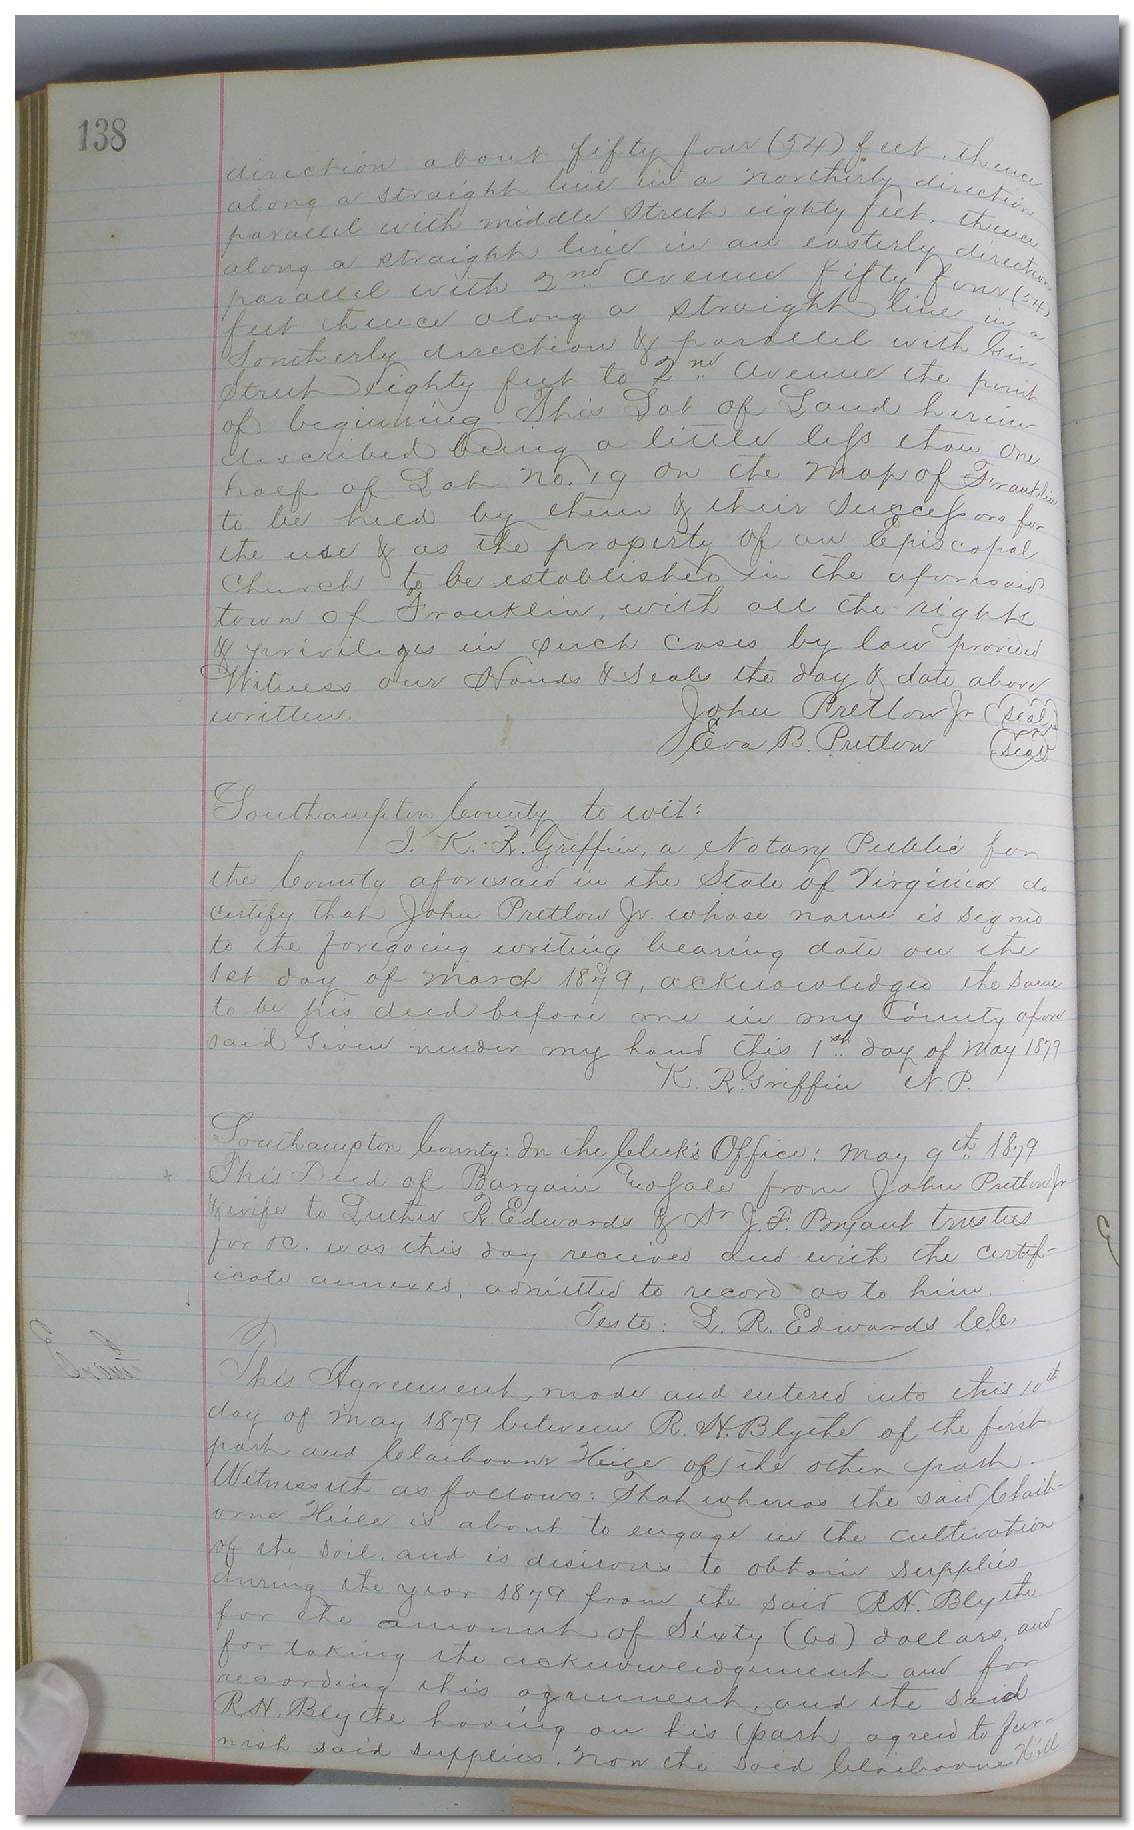 138
direction about fifty four (54) feet, thence
along a straight line in a northerly direction
parallel with middle Street eighty feet, thence
along a straight line in an easterly direction
parallel with 2nd Avenue fifty four (54)
feet thence along a straight line in a
Southerly direction & parallel with Gin
Street eighty feet to 2nd Avenue the point
of beginning. This Lot of Land herein
described being a little less than one
half of Lot No. 19 on the Map of Franklin
to be held by them & their successors for
the use & as the property of an Episcopal
Church to be established in the aforesaid
town of Franklin, with all the rights
& privileges in such cases by law provided
Witness our Hands & Seals the day & date above
written. John Pretlow Jr (seal)
Eva B. Pretlow (seal)
Southampton County to wit:
I. K. R. Griffin, a Notary Public for
the County aforesaid in the State of Virginia do
certify that John Pretlow Jr. whose name is signed
to the foregoing writing bearing date on the
1st day of March 1879, acknowledged the same
to be his deed before me in my County afore
said Given under my hand this 1st day of May 1879
K. R. Griffin N.P.
Southampton County: In the Clerk's Office: May 9th 1879
This Deed of Bargain and Sale from John Pretlow Jr
& wife to Luther R Edwards & Dr J. F. Bryant trustees
for &c. was this day received and with the certif-
icate annexed, admitted to record as to him.
Teste: L. R. Edwards Clk
This Agreement, made and entered into this 10th
day of May 1879 between R. H. Blythe of the first
part and Claiborne Hill of the other part.
Witnesseth as follows: That whereas the said Claib-
orne Hill is about to engage in the cultivation
of the soil, and is desirous to obtain supplies
during the year 1879 from the said R.H. Blythe
for the amount of Sixty (60) dollars, and
for taking the acknowledgement and for
recording this agreement, and the said
R.H. Blythe having on his part agreed to fur-
nish said supplies. Now the said Claiborne Hill